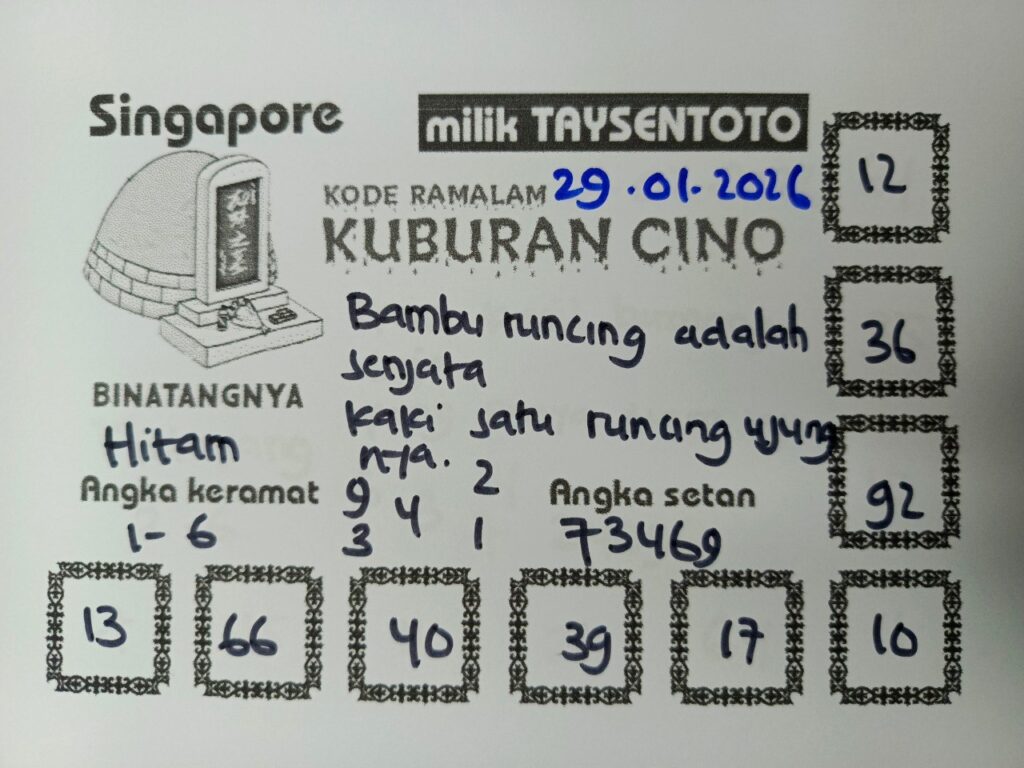 Singapore
milik TAYSENTOTO
KODE RAMALAM 29.01.2026
KUBURAN CINO
12
Bambu runcing adalah
senjata
kaki satu runcing ujung
nya.
36
BINATANGNYA
Hitam
Angka keramat
1- 6
9 2
4
3 1
Angka setan
73469
92
13 66 40 39 17 10